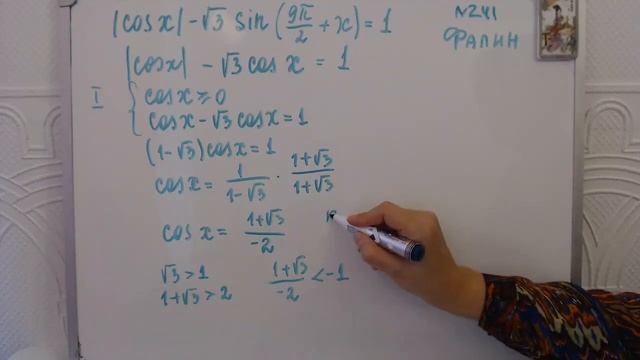 |cosx| - √3 sin (9π/2 + x) = 1
N241
ФАЛИН
|cosx| - √3 cos x = 1
I { cosx ≥ 0
cosx - √3 cosx = 1
(1-√3) cosx = 1
cosx = 1/(1-√3) · (1+√3)/(1+√3)
cos x = (1+√3)/-2
√3 > 1
1+√3 > 2
(1+√3)/-2 < -1